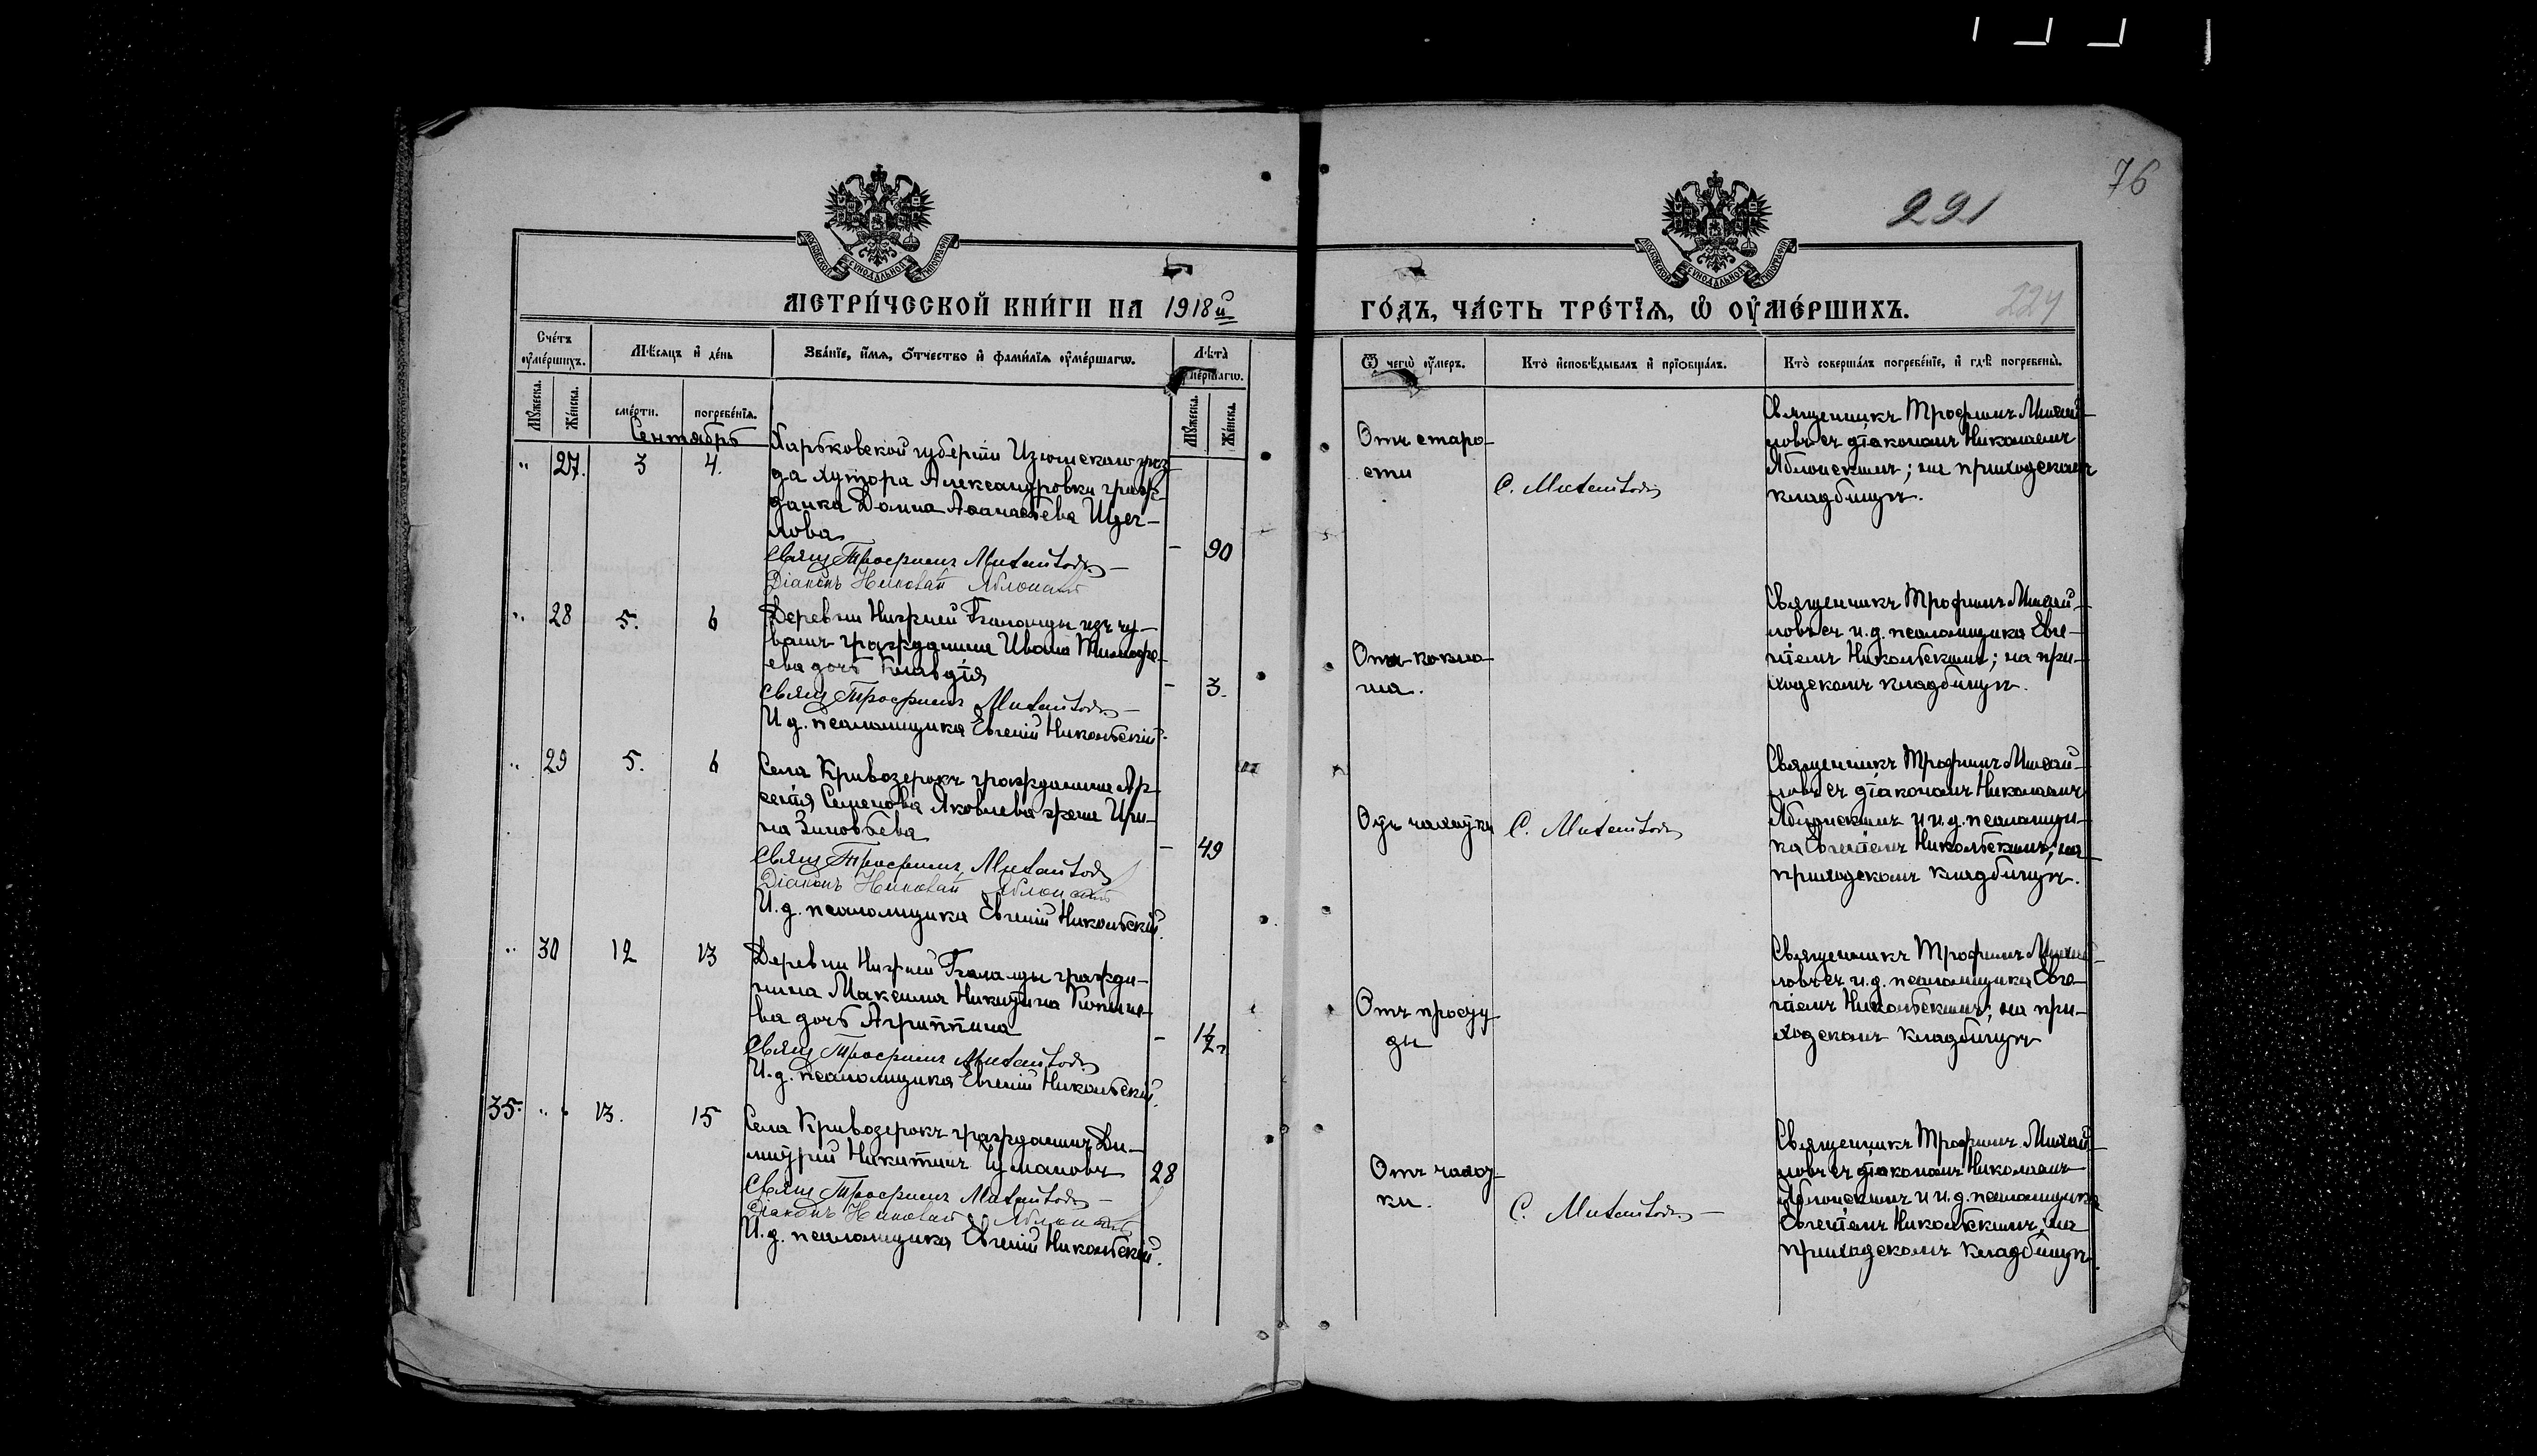 76
291
224
МОСКОВСКОЙ СѴНОДАЛЬНОЙ ТИПОГРАФІИ
МОСКОВСКОЙ СѴНОДАЛЬНОЙ ТИПОГРАФІИ
МЕТРИ́ЧЕСКОЙ КНИ́ГИ НА 1918й
ГО́ДЪ, ЧА́СТЬ ТРЕ́ТЇѦ, Ѡ҆ ОУ҆МЕ́РШИХЪ.
Сче́тъ оу҆ме́ршихъ.
Мѣ́сяцъ и҆ де́нь
Зва́нїе, и҆́мѧ, ѻ҆́тчество и҆ фами́лїѧ оу҆ме́ршагѡ.
Лѣ́та оу҆ме́ршагѡ.
Ѿ чегѡ̀ оу҆́меръ.
Кто̀ и҆сповѣ́дывалъ и҆ прїобща́лъ.
Кто̀ соверша́лъ погребе́нїе, и҆ гдѣ̀ погребены̀.
Мꙋ́жеска.
Же́нска.
сме́рти.
погребе́нїѧ.
Мꙋ́жеска.
Же́нска.
Сентябрь
" 27. 3 4.
Харьковской губерніи Изюмскаго уѣз-
да хутора Александровки граж-
данка Домна Аѳанасьева Щег-
лова
- 90
Свящ Трофимъ Михайловъ
Діаконъ Николай Яблонскій
Отъ старо-
сти
С. Михайловъ
Священникъ Трофимъ Михай-
ловъ съ діакономъ Николаемъ
Яблонскимъ; на приходскомъ
кладбищѣ.
" 28 5. 6
Деревни Нижней изъ чу-
вашъ гражданина Ивана Тимофе-
ева дочь Клавдія
- 3.
Свящ Трофимъ Михайловъ
И. д. псаломщика Евгеній Никольскій.
Отъ коклю-
ша.
Священникъ Трофимъ Михай-
ловъ съ и. д. псаломщика Евге-
ніемъ Никольскимъ; на при-
ходскомъ кладбищѣ.
" 29 5. 6
Села Кривозерокъ гражданина Ар-
сенія Семенова Яковлева жена Ири-
на Зиновьева
- 49
Свящ Трофимъ Михайловъ
Діаконъ Николай Яблонскій
И. д. псаломщика Евгеній Никольскій.
Отъ чахотки
С. Михайловъ
Священникъ Трофимъ Михай-
ловъ съ діакономъ Николаемъ
Яблонскимъ и и. д. псаломщи-
ка Евгеніемъ Никольскимъ; на
приходскомъ кладбищѣ.
" 30 12 13
Деревни Нижней гражда-
нина Максима Никитина
ва дочь Агриппина
- 1½ г
Свящ Трофимъ Михайловъ
И. д. псаломщика Евгеній Никольскій.
Отъ просту-
ды
Священникъ Трофимъ Михай-
ловъ съ и. д. псаломщика Евге-
ніемъ Никольскимъ; на при-
ходскомъ кладбищѣ
35. " 13. 15
Села Кривозерокъ гражданинъ Ди-
митрій Никитинъ
28
Свящ Трофимъ Михайловъ
Діаконъ Николай Яблонскій
И. д. псаломщика Евгеній Никольскій.
Отъ чахот-
ки.
С. Михайловъ
Священникъ Трофимъ Михай-
ловъ съ діакономъ Николаемъ
Яблонскимъ и и. д. псаломщика
Евгеніемъ Никольскимъ; на
приходскомъ кладбищѣ.